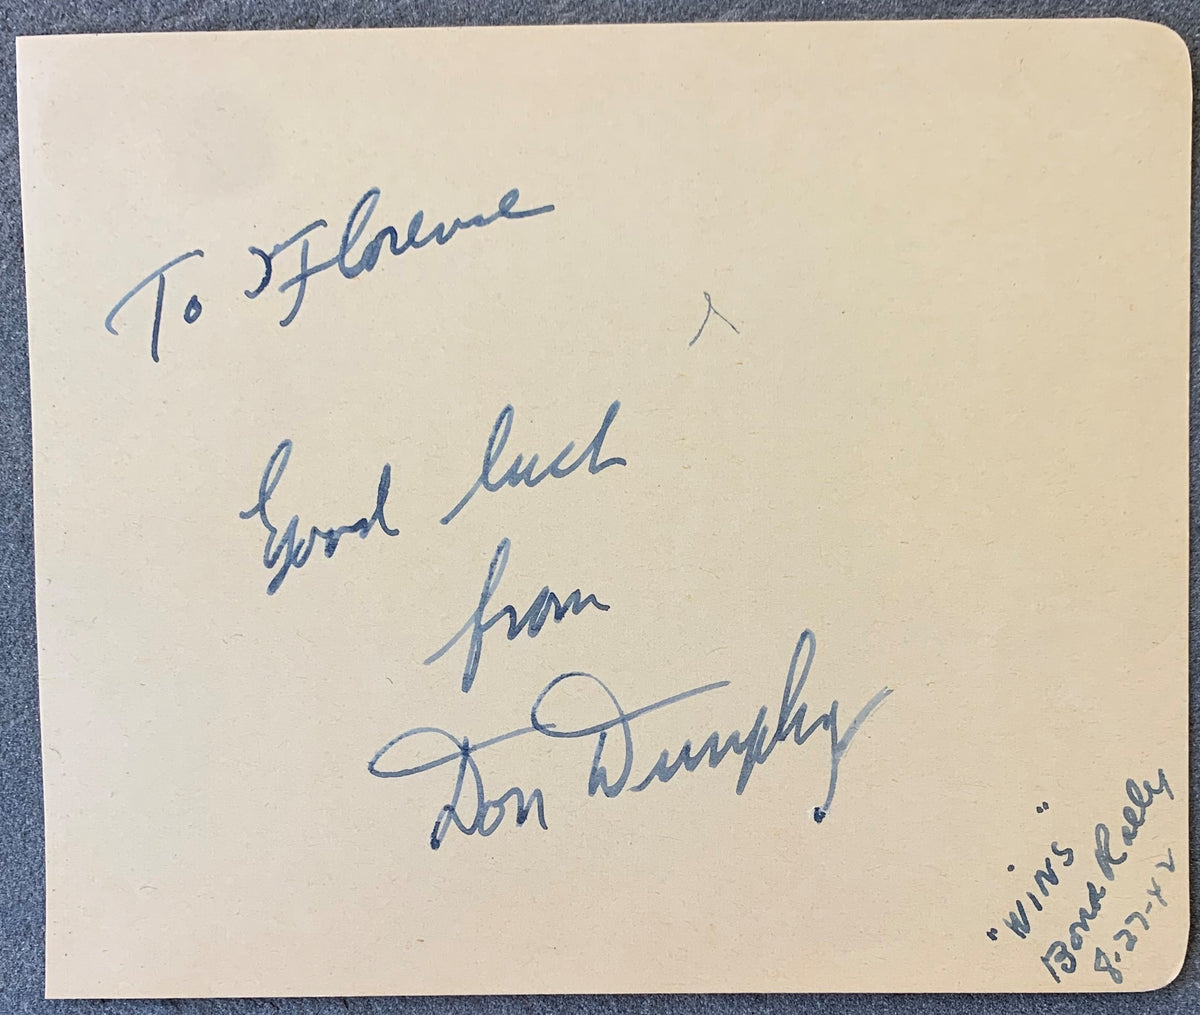 To Florence
Good luck
from
Don Dunphy
"WINS"
Bond Rally
8-27-42